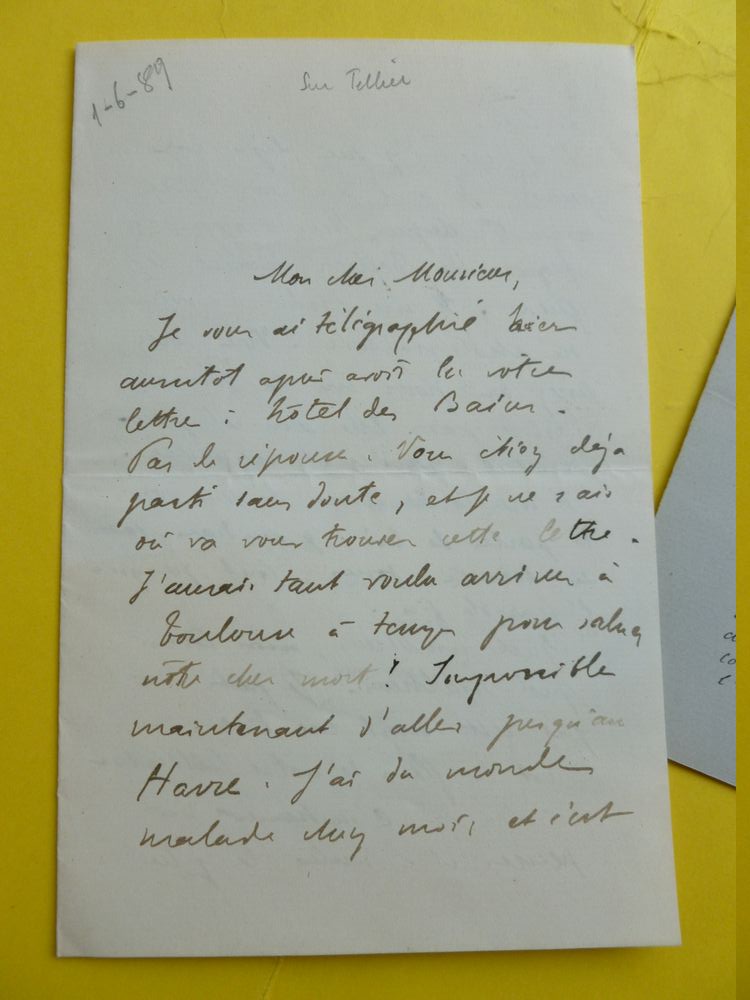 1-6-89
Sur Tellier
Mon cher Monsieur,
Je vous ai télégraphié hier
aussitot après avoir lu votre
lettre : hôtel des Bains.
Pas de réponse. Vous étiez déja
parti sans doute, et je ne sais
où va vous trouver cette lettre.
J'aurais tant voulu arriver à
Toulouse à temps pour saluer
notre cher mort ! Impossible
maintenant d'aller jusqu'au
Havre. J'ai du monde
malade chez moi, et c'est